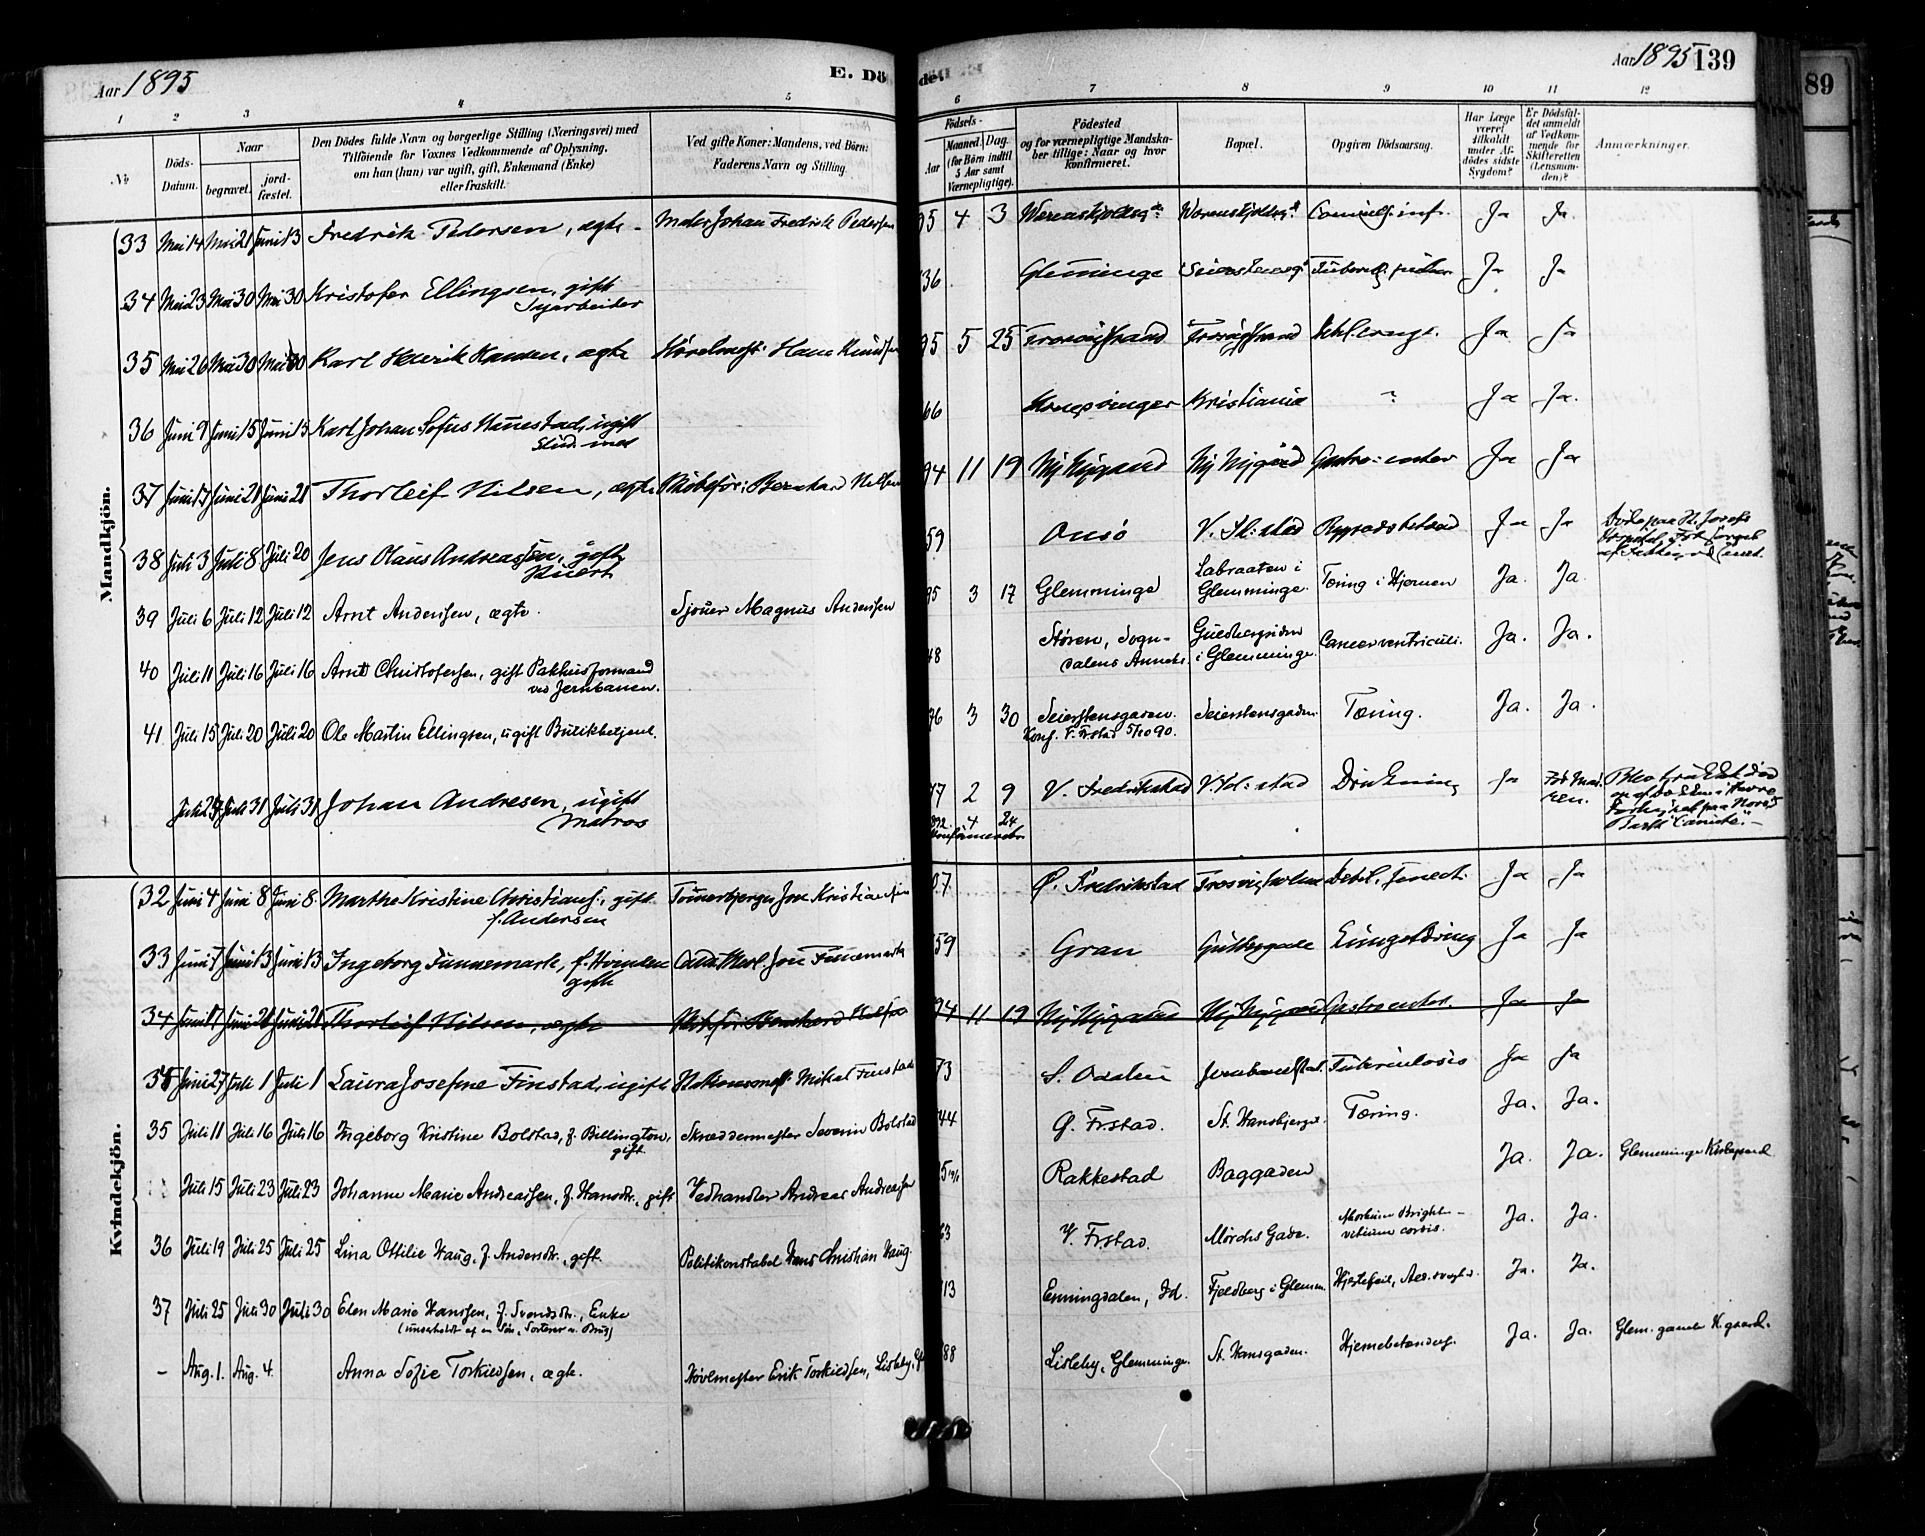 Aar 1895
E. Dö
de.
Aar 1895 139
89
1 2 3 4 5 6 7 8 9 10 11 12
No
Döds-Datum.
Naar
begravet.
jord-fæstet.
Den Dödes fulde Navn og borgerlige Stilling (Næringsvei) med
Tilföiende for Voxnes Vedkommende af Oplysning,
om han (hun) var ugift, gift, Enkemand (Enke)
eller fraskilt.
Ved gifte Koner: Mandens, ved Börn:
Faderens Navn og Stilling
Födsels-
Aar
Maaned. Dag.
(for Börn indtil
5 Aar samt
Værnepligtige).
Födested
og for værnepligtige Mandska-
ber tillige: Naar og hvor
konfirmeret.
Bopæl.
Opgiven Dödsaarsag.
Har Læge
været
tilkaldt
under Af-
dödes sidste
Sygdom?
Er Dödsfal-
det anmeldt
af Vedkom-
mende for
Skifteretten
(Lensman-
den)?
Anmærkninger.
Mandkjön.
33 Mai 14 Mai 21 Juni 13 Fredrik Pedersen, ægte Johan Fredrik Pedersen 95 4 3 Ja Ja
34 Mai 23 Mai 30 Mai 30 Kristofer Ellingsen, gift 36 Glemminge Ja Ja
35 Mai 26 Mai 30 Mai 30 Karl Henrik Hansen, ægte Hans Knudsen 95 5 25 Trosvigstrand Trosvigstrand Ja Ja
36 Juni 9 Juni 15 Juni 15 Karl Johan Sofus Hunestad, ugift
Stud. med
66 Kongsvinger Kristiania " Ja Ja.
37 Juni 17 Juni 21 Juni 21 Thorleif Nilsen, ægte Bernhard Nilsen 94 11 19 Ny Nygaard Ny Nygård Ja Ja
38 Juli 3 Juli 8 Juli 20 Jens Olaus Andreassen, gift 59 Onsö V. Fr:stad Ja Ja
39 Juli 6 Juli 12 Juli 12 Arnt Andersen, ægte. Sjouer Magnus Anderssen 95 3 17 Glemminge Labraaten i
Glemminge. Tæring i Hjernen Ja. Ja
40 Juli 11 Juli 16 Juli 16 Arnt Christofersen, gift Pakhusformand
ved Jernbanen.
48 Støren, Sogn-
dalens Annex. i Glemminge. Cancer ventriculi. Ja. Ja.
41 Juli 15 Juli 20 Juli 20 Ole Martin Ellingsen, ugift Butikbetjent. 76 3 30 Seierstensgaden.
Konf. V. Frstad 5/10 90. Seierstensgaden. Tæring. Ja. Ja.
Juli 25 Juli 31 Juli 31 Johan Andresen, ugift
Matros
77 2 9 V. Fredrikstad V. Fr:stad Drukning Ja
92. 4 24
Kvindekjön.
32 Juni 4 Juni 8 Juni 8. Marthe Kristine Christians., gift
f. Andersen
Ø. Fredrikstad Trosvigholm Ja Ja
33 Juni 7 Juni 13 Juni 13 Ingeborg Funnemark, gift 59 Gran Ja Ja
34 Juni 17 Juni 21 Juni 21 Thorleif Nilsen, ægte 94 11 19 Ny Nygaard Ny Nygaard Ja Ja
35 Juni 27 Juli 1 Juli 1 Laura Josefine Finstad, ugift 73 S. Odalen Tuberculosis Ja Ja
35 Juli 11 Juli 16 Juli 16 Ingeborg Kristine Bolstad, f. Billington,
gift.
Skræddermester Severin Bolstad 44 Ø. Fr.stad. St. Hansbjerget. Tæring. Ja. Ja.
Juli 15 Juli 23 Juli 23 Johanne Marie Andreassen, f. Hansdtr., gift Vedhandler Andreas Andreassen Rakkestad Baggaden Ja. Ja. Glemminge Kirkegaard
36 Juli 19 Juli 25 Juli 25 Lina Ottilie Haug, f. Andersdtr., gift. Politikonstabel Hans Christian Haug. 63 V. Fr.stad. Mörchs Gade. Morbus Brightii -
vitium cordis. Ja. Ja.
37 Juli 25 Juli 30 Juli 30 Elen Marie Hanssen, f. Svendsdtr., Enke
(underholdt af en Søn,
13 Enningdalen, Id. Fjeldberg i Glemm. Ja. Ja.
- Aug. 1. Aug. 4. Anna Sofie Torkildsen, ægte. Hövlmester Erik Torkildsen, Lisleby, 88 Lisleby, Glemminge. St. Hansgaden. Hjernebetændelse. Ja. Ja. Glem. gamle K.gaard.